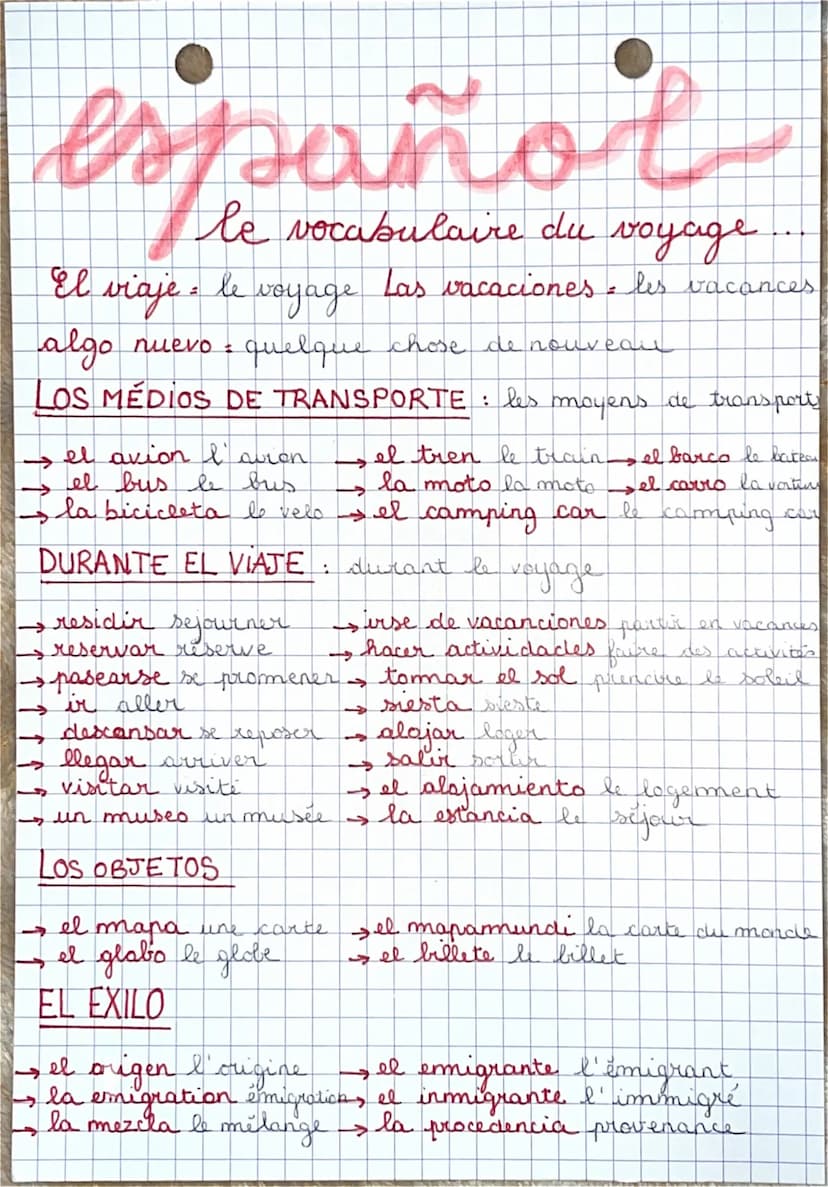 español
le vocabulaire du voyage...
El viaje = le voyage Las vacaciones = les vacances
algo nuevo = quelque chose de nouveau
LOS MÉDIOS DE TRANSPORTE : les moyens de transports
→ el avion l'avion → el tren le train → el barco le bateau
→ el bus le bus → la moto la moto → el carro la voiture
→ la bicicleta le velo → el camping car le camping car
DURANTE EL VIAJE : durant le voyage
→ residir sejourner → irse de vacanciones partir en vacances
→ reservar réserve → hacer actividades faire des activités
→ pasearse se promener → tommar el sol prendre le soleil
→ ir aller → siesta sieste
→ descansar se reposer → alojar loger
→ llegar arriver → salir sortir
→ visitar visité → el alojamiento le logement
→ un museo un musée → la estancia le séjour
LOS OBJETOS
→ el mapa une carte → el mapamundi la carte du monde
→ el globo le globe → el billete le billet
EL EXILO
→ el origen l'origine → el emigrante l'émigrant
→ la emigration émigration → el inmigrante l'immigré
→ la mezcla le mélange → la procedencia provenance